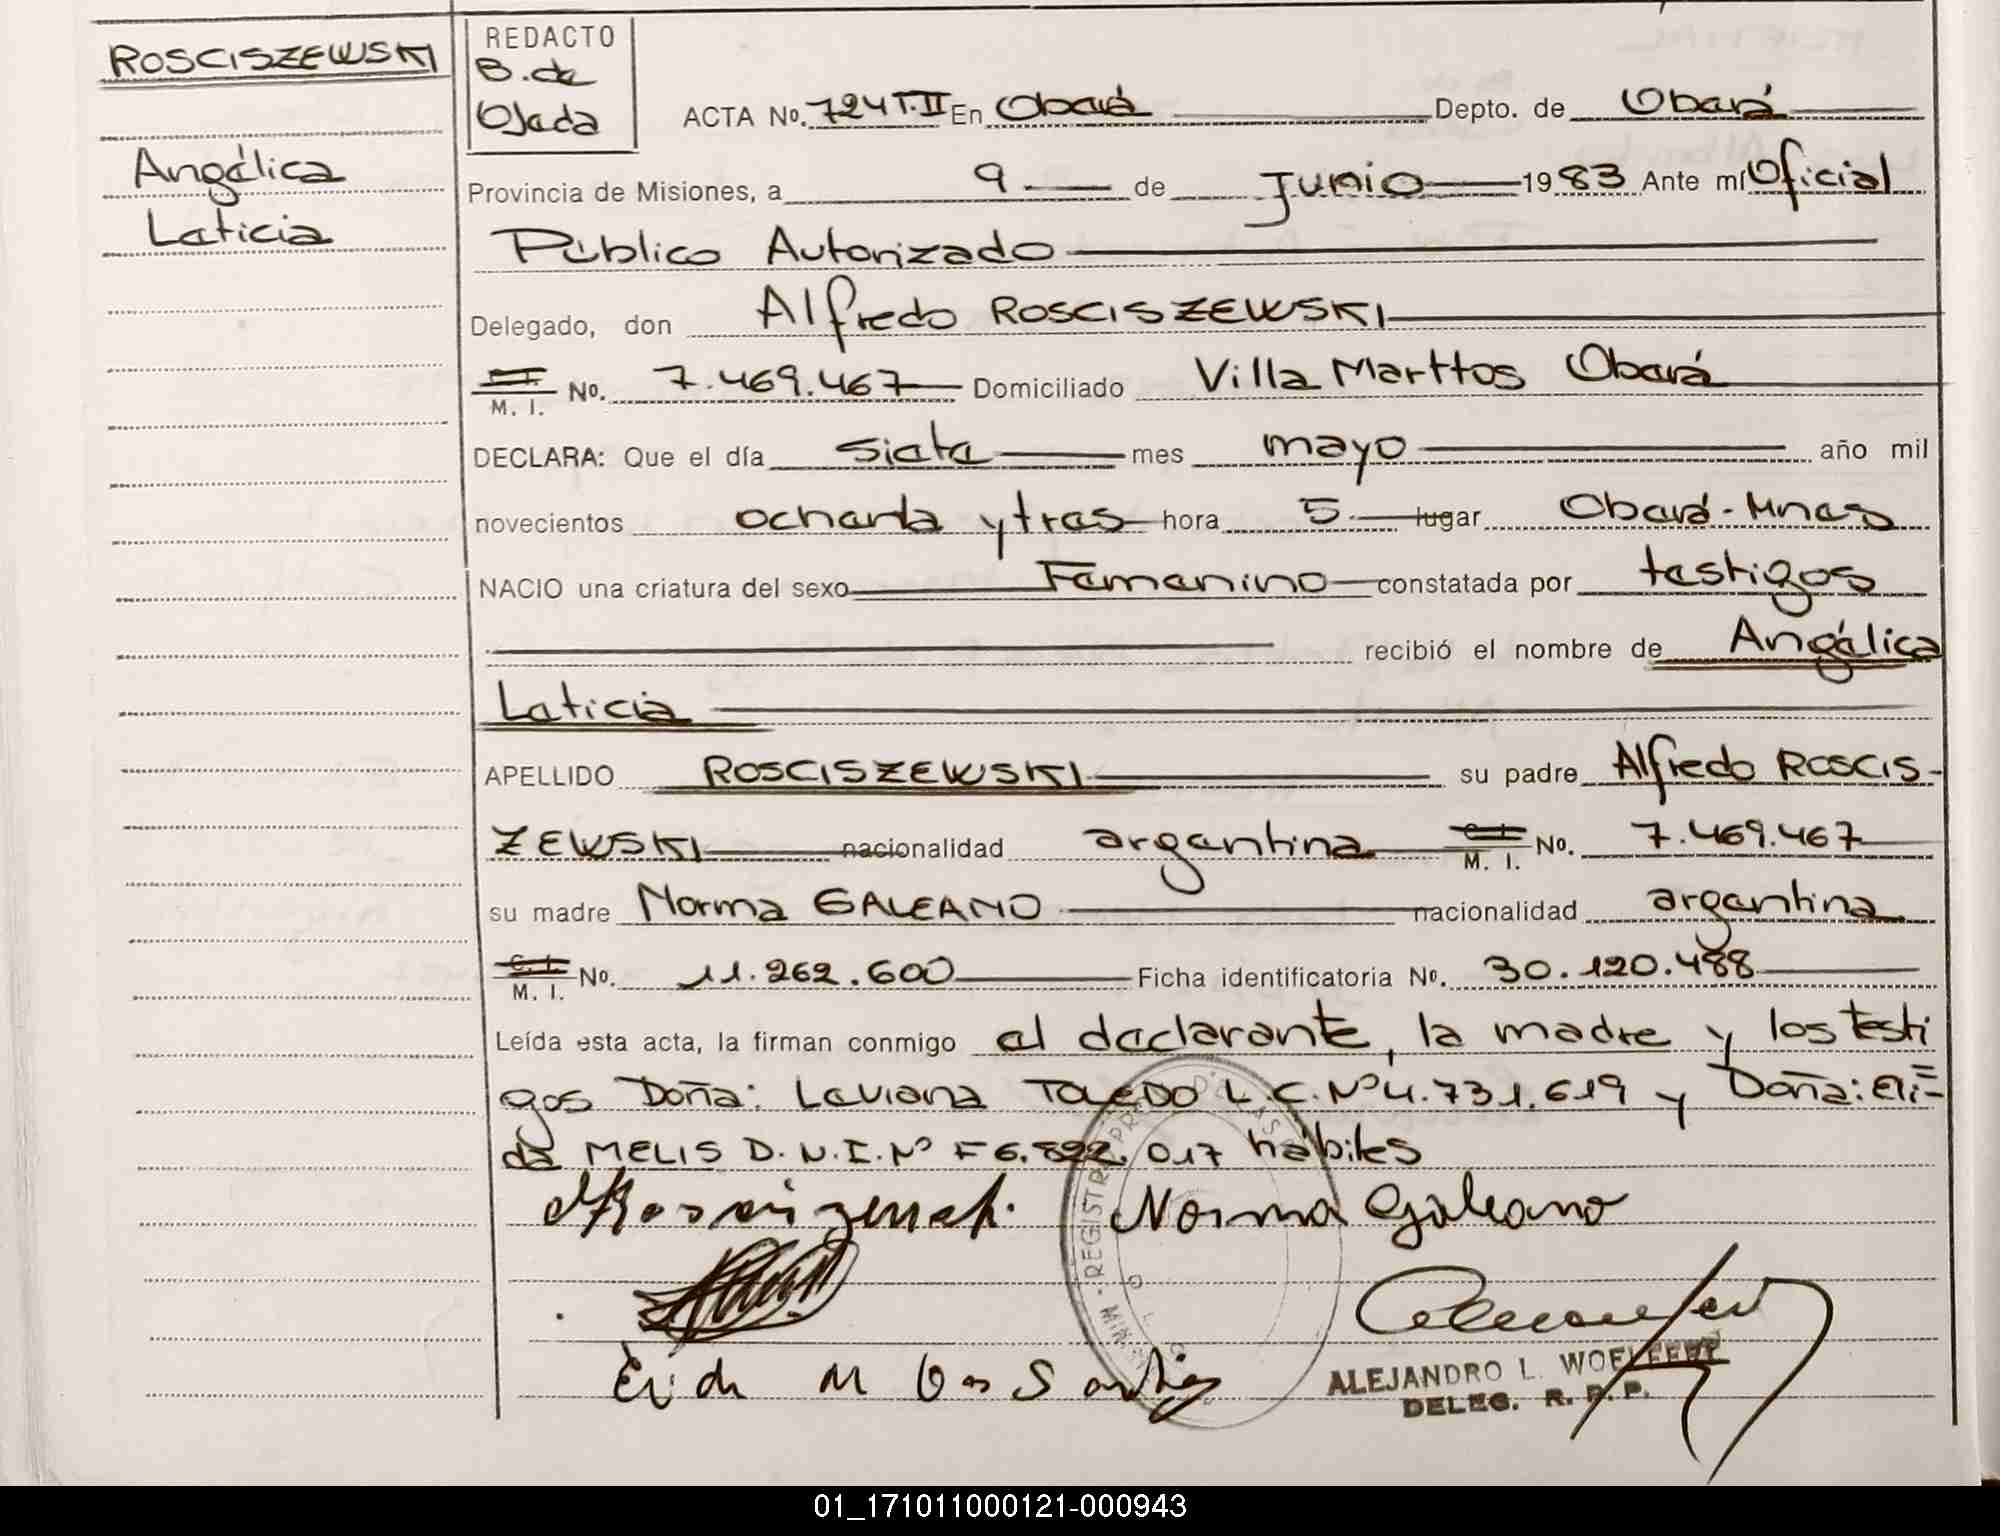 ROSCISZEWSKI
Angélica
Leticia
REDACTO
B. de
Ojeda
ACTA No. 724 T.II En Oberá Depto. de Oberá
Provincia de Misiones, a 9 de Junio 1983 Ante mí Oficial
Público Autorizado
Delegado, don Alfredo ROSCISZEWSKI
M. I. No. 7.469.467 Domiciliado Villa Marttos Oberá
DECLARA: Que el día siete mes mayo año mil
novecientos ochenta y tres hora 5 lugar Oberá-Mnes
NACIO una criatura del sexo Femenino constatada por testigos
recibió el nombre de Angélica
Leticia
APELLIDO ROSCISZEWSKI su padre Alfredo ROSCIS-
ZEWSKI nacionalidad argentina C. I. M. I. No. 7.469.467
su madre Norma GALEANO nacionalidad argentina
C. I. M. I. No. 11.262.600 Ficha identificatoria No. 30.120.488
Leída esta acta, la firman conmigo el declarante, la madre y los testi
gos Doña: Leviana TOLEDO L.C. Nº 4.731.619 y Doña: Eri=
da MELIS D.N.I. Nº F6.822.017 hábiles
Norma Galeano
ALEJANDRO L. WOELFERT
DELEG. R. P. P.
01_171011000121-000943